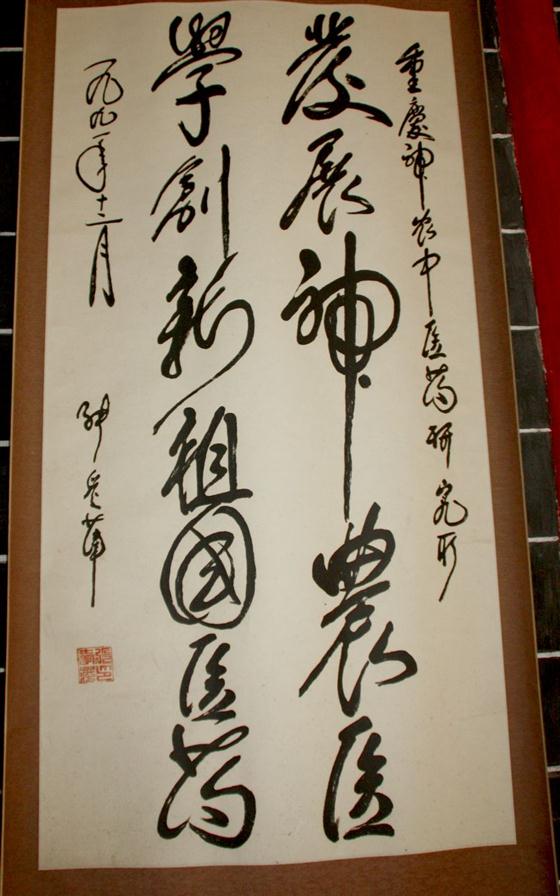 重慶神农中医药研究所
發展神農医
學創新祖國医药
一九九一年十二月